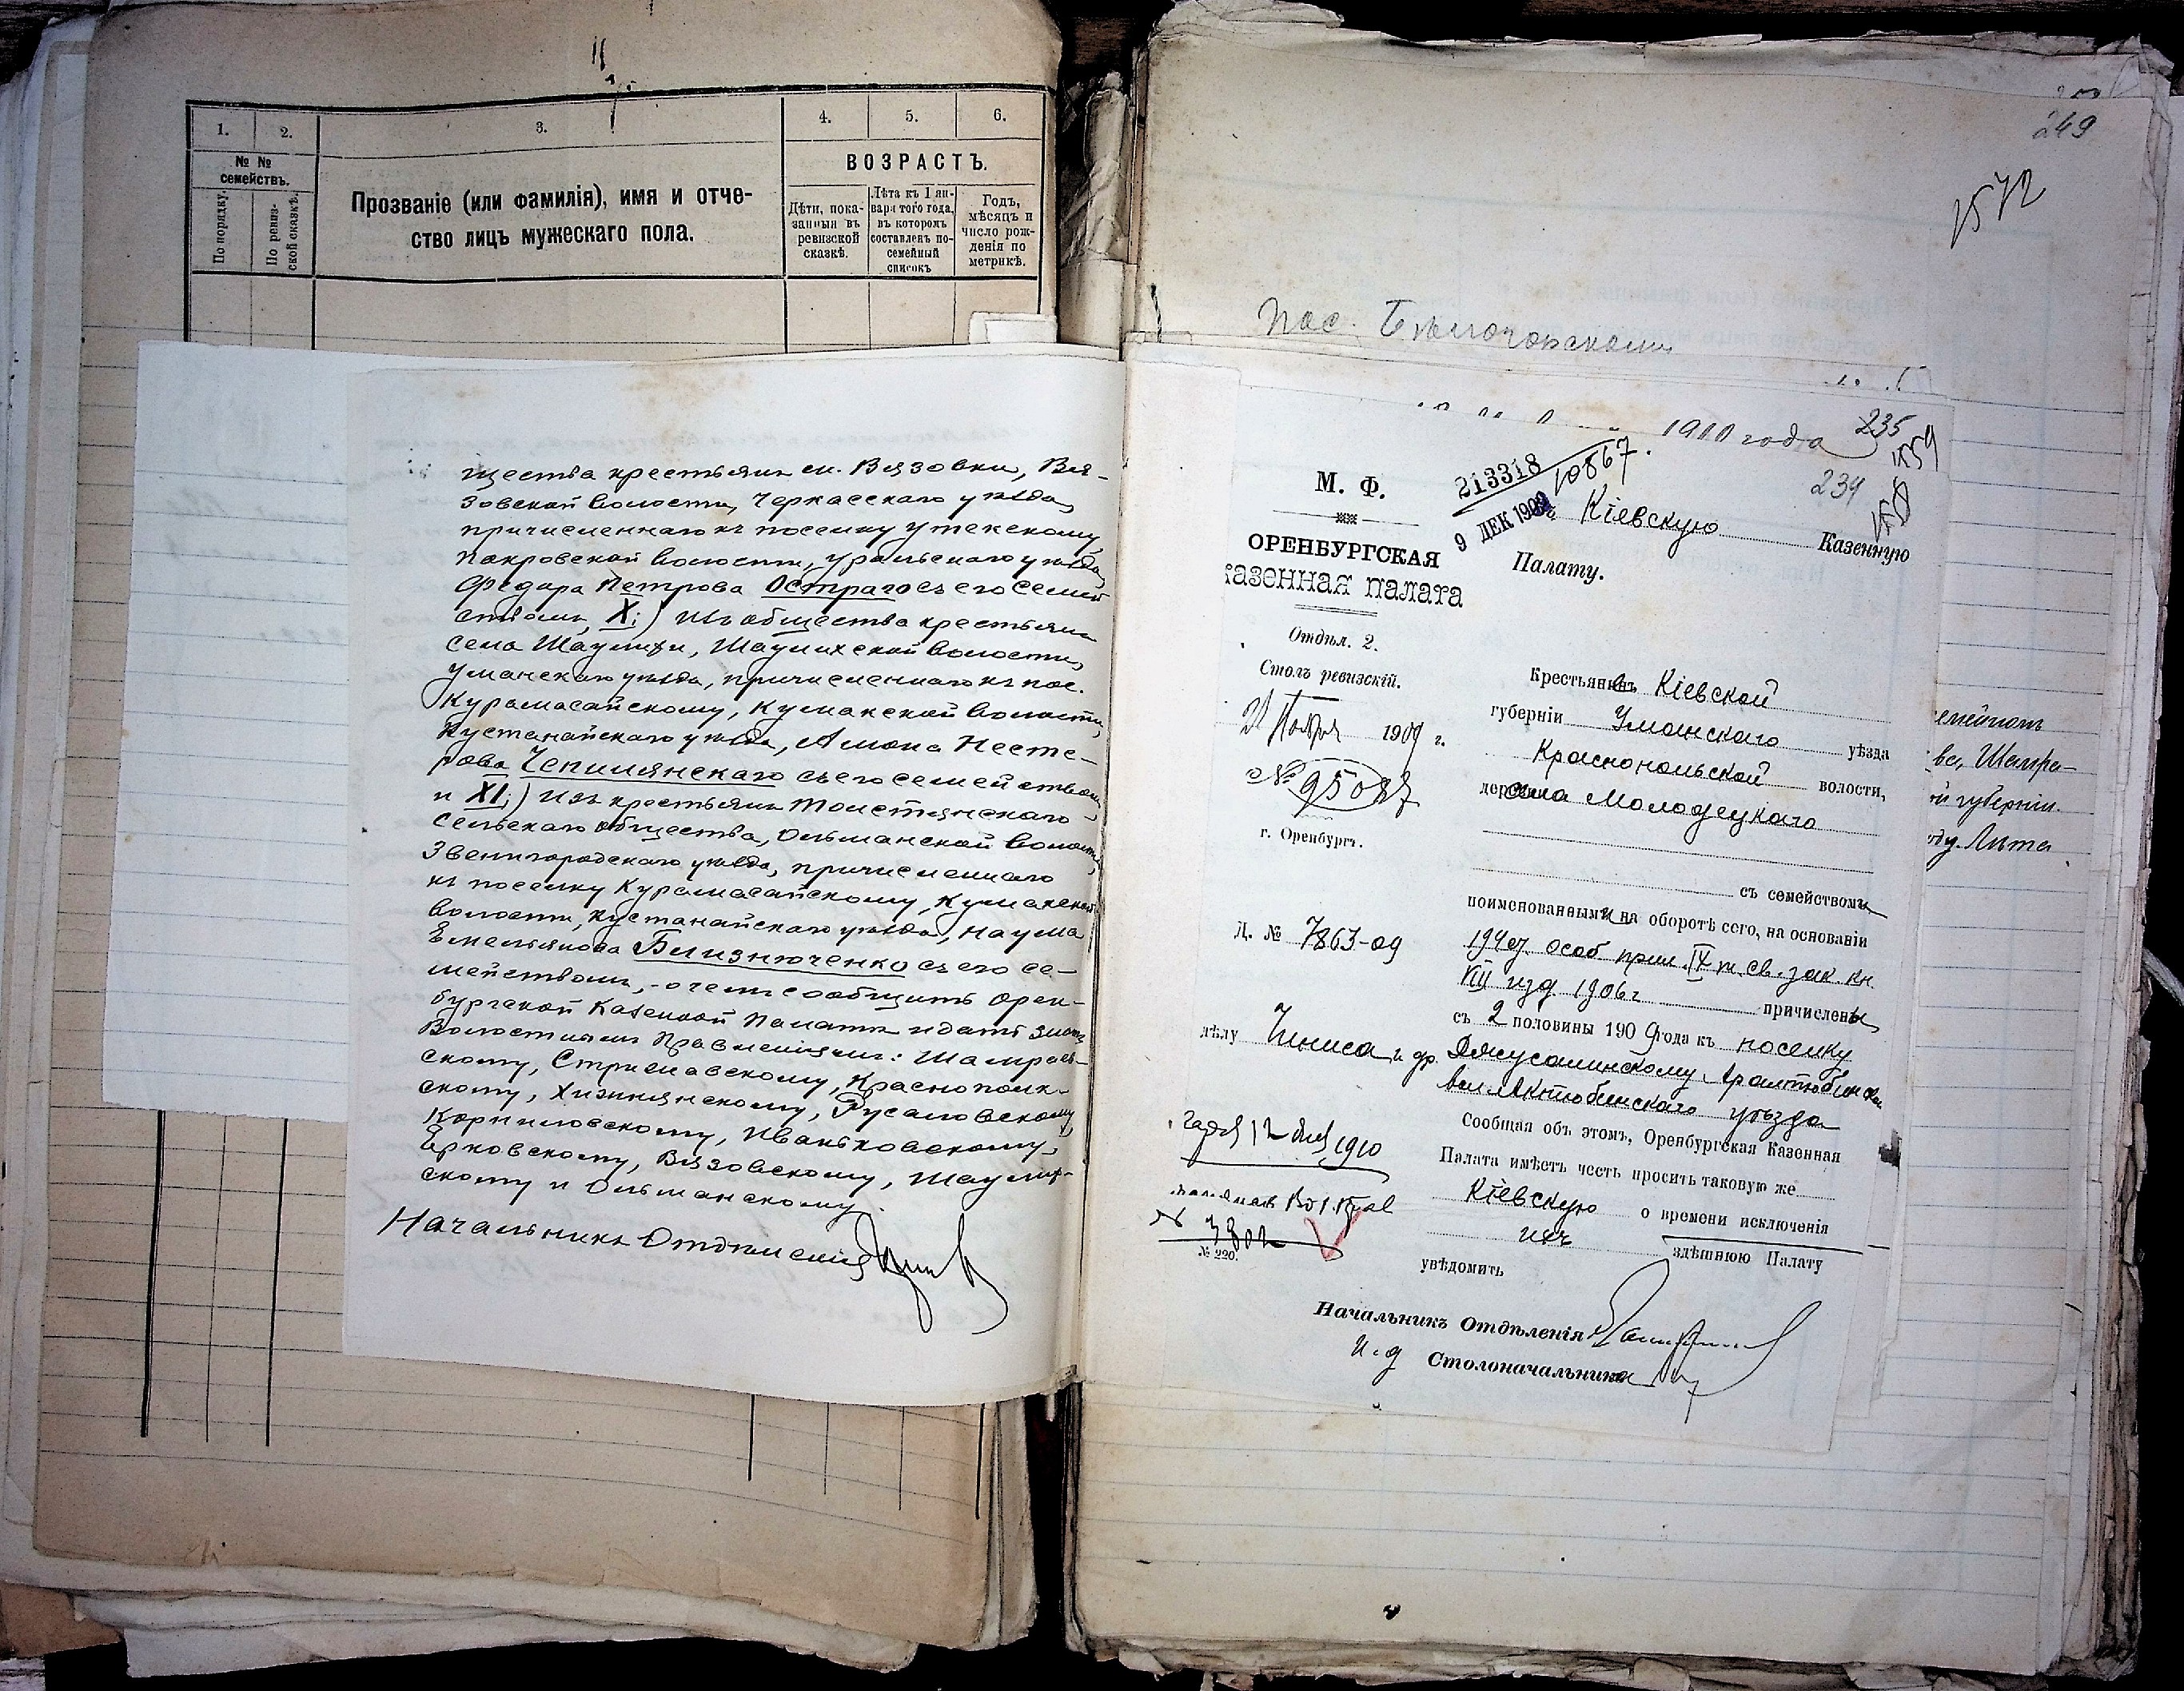 1.
2.
3.
4.
5.
6.
№ №
семействъ.
По порядку.
По ревиз-
ской сказкѣ.
Прозваніе (или фамилія), имя и отче-
ство лицъ мужескаго пола.
ВОЗРАСТЪ.
Дѣти, пока-
занныя въ
ревизской
сказкѣ.
Лѣта къ 1 ян-
варя того года,
въ которомъ
составленъ по-
семейный
списокъ
Годъ,
мѣсяцъ и
число рож-
денія по
метрикѣ.
щества крестьянъ с. Вязовки, Вя-
зовской волости, Черкасскаго уѣзда,
причисленнаго къ поселку Утекскому,
Покровской волости, Уральскаго уѣзда,
Федора Петрова Остраго съ его семей-
ствомъ, X;) изъ общества крестьянъ
села Шаулихи, Шаулихской волости,
Уманскаго уѣзда, причисленнаго къ пос.
Курамасайскому, Кумакской волости,
Кустанайскаго уѣзда, Амона Несте-
рова Чепилянскаго съ его семействомъ
и XI;) изъ крестьянъ Толстянскаго
сельскаго общества, Ольшанской волости,
Звенигородскаго уѣзда, причисленнаго
къ поселку Курамасайскому, Кумакской
волости, Кустанайскаго уѣзда, Наума
Емельянова Близнюченко съ его се-
мействомъ, - о чемъ сообщить Орен-
бургской Казенной Палатѣ и дать знать
Волостнымъ Правленіямъ: Шамраев-
скому, Стрижавскому, Краснополь-
скому, Хижинянскому, Русаловскому,
Корниловскому, Иваньковскому,
Ерковскому, Вязовскому, Шаулих-
скому и Ольшанскому.
Начальникъ Отдѣленія
249
1572
пос. Бѣлогорскому
1910 года
235
234
1559
М. Ф.
ОРЕНБУРГСКАЯ
казенная палата
Отдѣл. 2.
Столъ ревизскій.
21 Ноября 1909 г.
№ 95087
г. Оренбургъ.
213318
10867.
9 ДЕК 190
Кіевскую Казенную
Палату.
Крестьянинъ Кіевской
губерніи Уманскаго уѣзда
Краснопольской волости,
села Молодецкаго
съ семействомъ
поименованными на оборотѣ сего, на основаніи
194 ст особ прил. IX т. св. зак. кн.
VIII изд. 1906 г причислены
съ 2 половины 1909 года къ поселку
Джусалинскому, Аралтюбинской
вол. Актюбинскаго уѣзда
Д. № 7863-09
дѣлу и др.
Сообщая объ этомъ, Оренбургская Казенная
Палата имѣетъ честь просить таковую же
Кіевскую о времени исключенія
ихъ здѣшнюю Палату
увѣдомить
1910
№ 3802
№ 220.
Начальникъ Отдѣленія
И. д Столоначальника
губерніи.